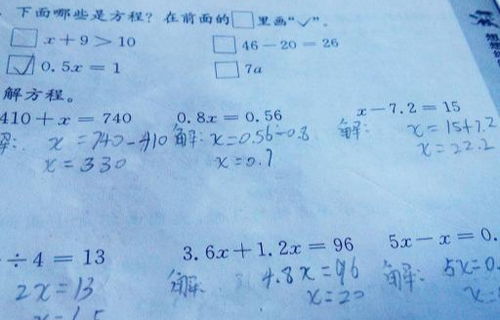 下面哪些是方程？在前面的□里画“✓”。
□ x+9>10 □ 46-20=26
☑ 0.5x=1 □ 7a
解方程。
410+x=740 0.8x=0.56 x-7.2=15
解: x=740-410 解: x=0.56÷0.8 解: x=15+7.2
x=330 x=0.7 x=22.2
÷4=13 3.6x+1.2x=96 5x-x=0.
2x=13 解: 4.8x=96 解: 5x=0.
x=20